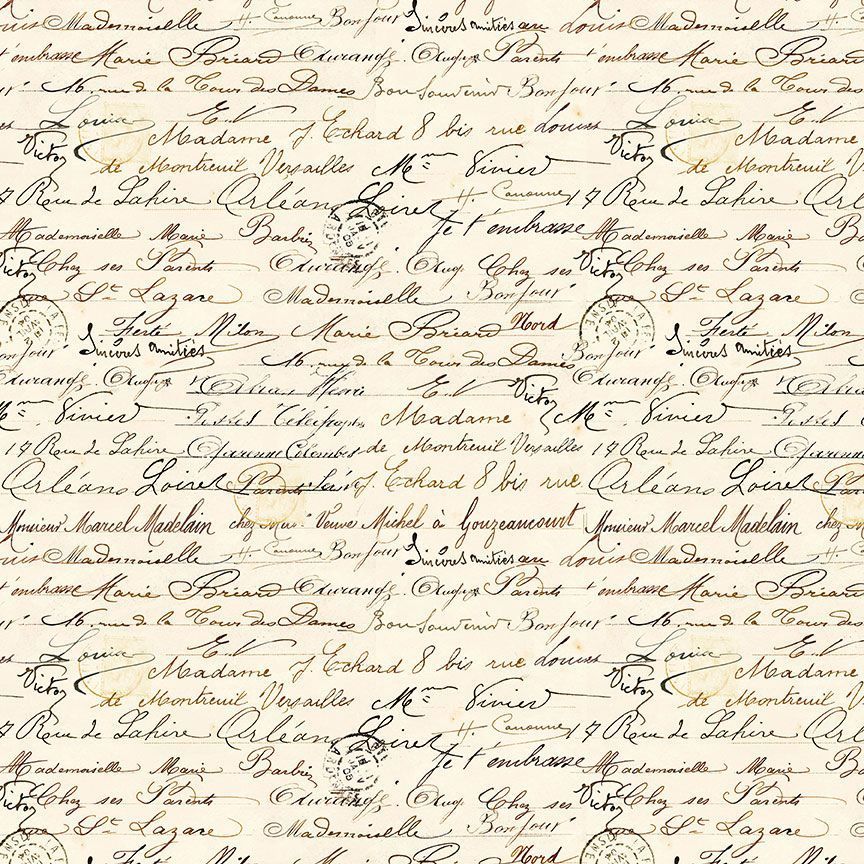 Louis Mademoiselle H. Canonne Bonjour Sincères amitiés rue Louis Mademoiselle H. Canonne Bonjour
t'embrasse Marie Briard Parents t'embrasse Marie Briard
16. rue de la Tour des Dames Bon Souvenir Bonjour 16. rue de la Tour des Dames
Louise E.V Louise E.V
Victor Madame J. Echard 8 bis rue Louise Victor Madame
de Montreuil Versailles Mme Vivier de Montreuil Versailles
17 Rue de Lahire Orléans Loiret H. Canonne 17 Rue de Lahire
Mademoiselle Marie Barbier Je t'embrasse Mademoiselle Marie Barbier
Victor Chez ses Parents Chez ses Victor Chez ses Parents
rue St Lazare Mademoiselle Bonjour rue St Lazare
Ferté Milon Marie Briard Nord Ferté Milon
Bonjour Sincères amitiés 16. rue de la Tour des Dames Bonjour Sincères amitiés
E.V Victor
Mme Vivier Postes Télégraphes Madame Mme Vivier
17 Rue de Lahire Garenne Colombes de Montreuil Versailles 17 Rue de Lahire Garenne
Orléans Loiret Parents J. Echard 8 bis rue Orléans Loiret
Monsieur Marcel Madelain chez Veuve Michel à Gouzeaucourt Monsieur Marcel Madelain chez
Louis Mademoiselle H. Canonne Bonjour Sincères amitiés rue Louis Mademoiselle H. Canonne Bonjour
t'embrasse Marie Briard Parents t'embrasse Marie Briard
16. rue de la Tour des Dames Bon Souvenir Bonjour 16. rue de la Tour des Dames
Louise E.V Louise E.V
Victor Madame J. Echard 8 bis rue Louise Victor Madame
de Montreuil Versailles Mme Vivier de Montreuil Versailles
17 Rue de Lahire Orléans Loiret H. Canonne 17 Rue de Lahire
Mademoiselle Marie Barbier Je t'embrasse Mademoiselle Marie Barbier
Victor Chez ses Parents Chez ses Victor Chez ses Parents
rue St Lazare Mademoiselle Bonjour rue St Lazare
Ferté Milon Marie Briard Nord Ferté Milon